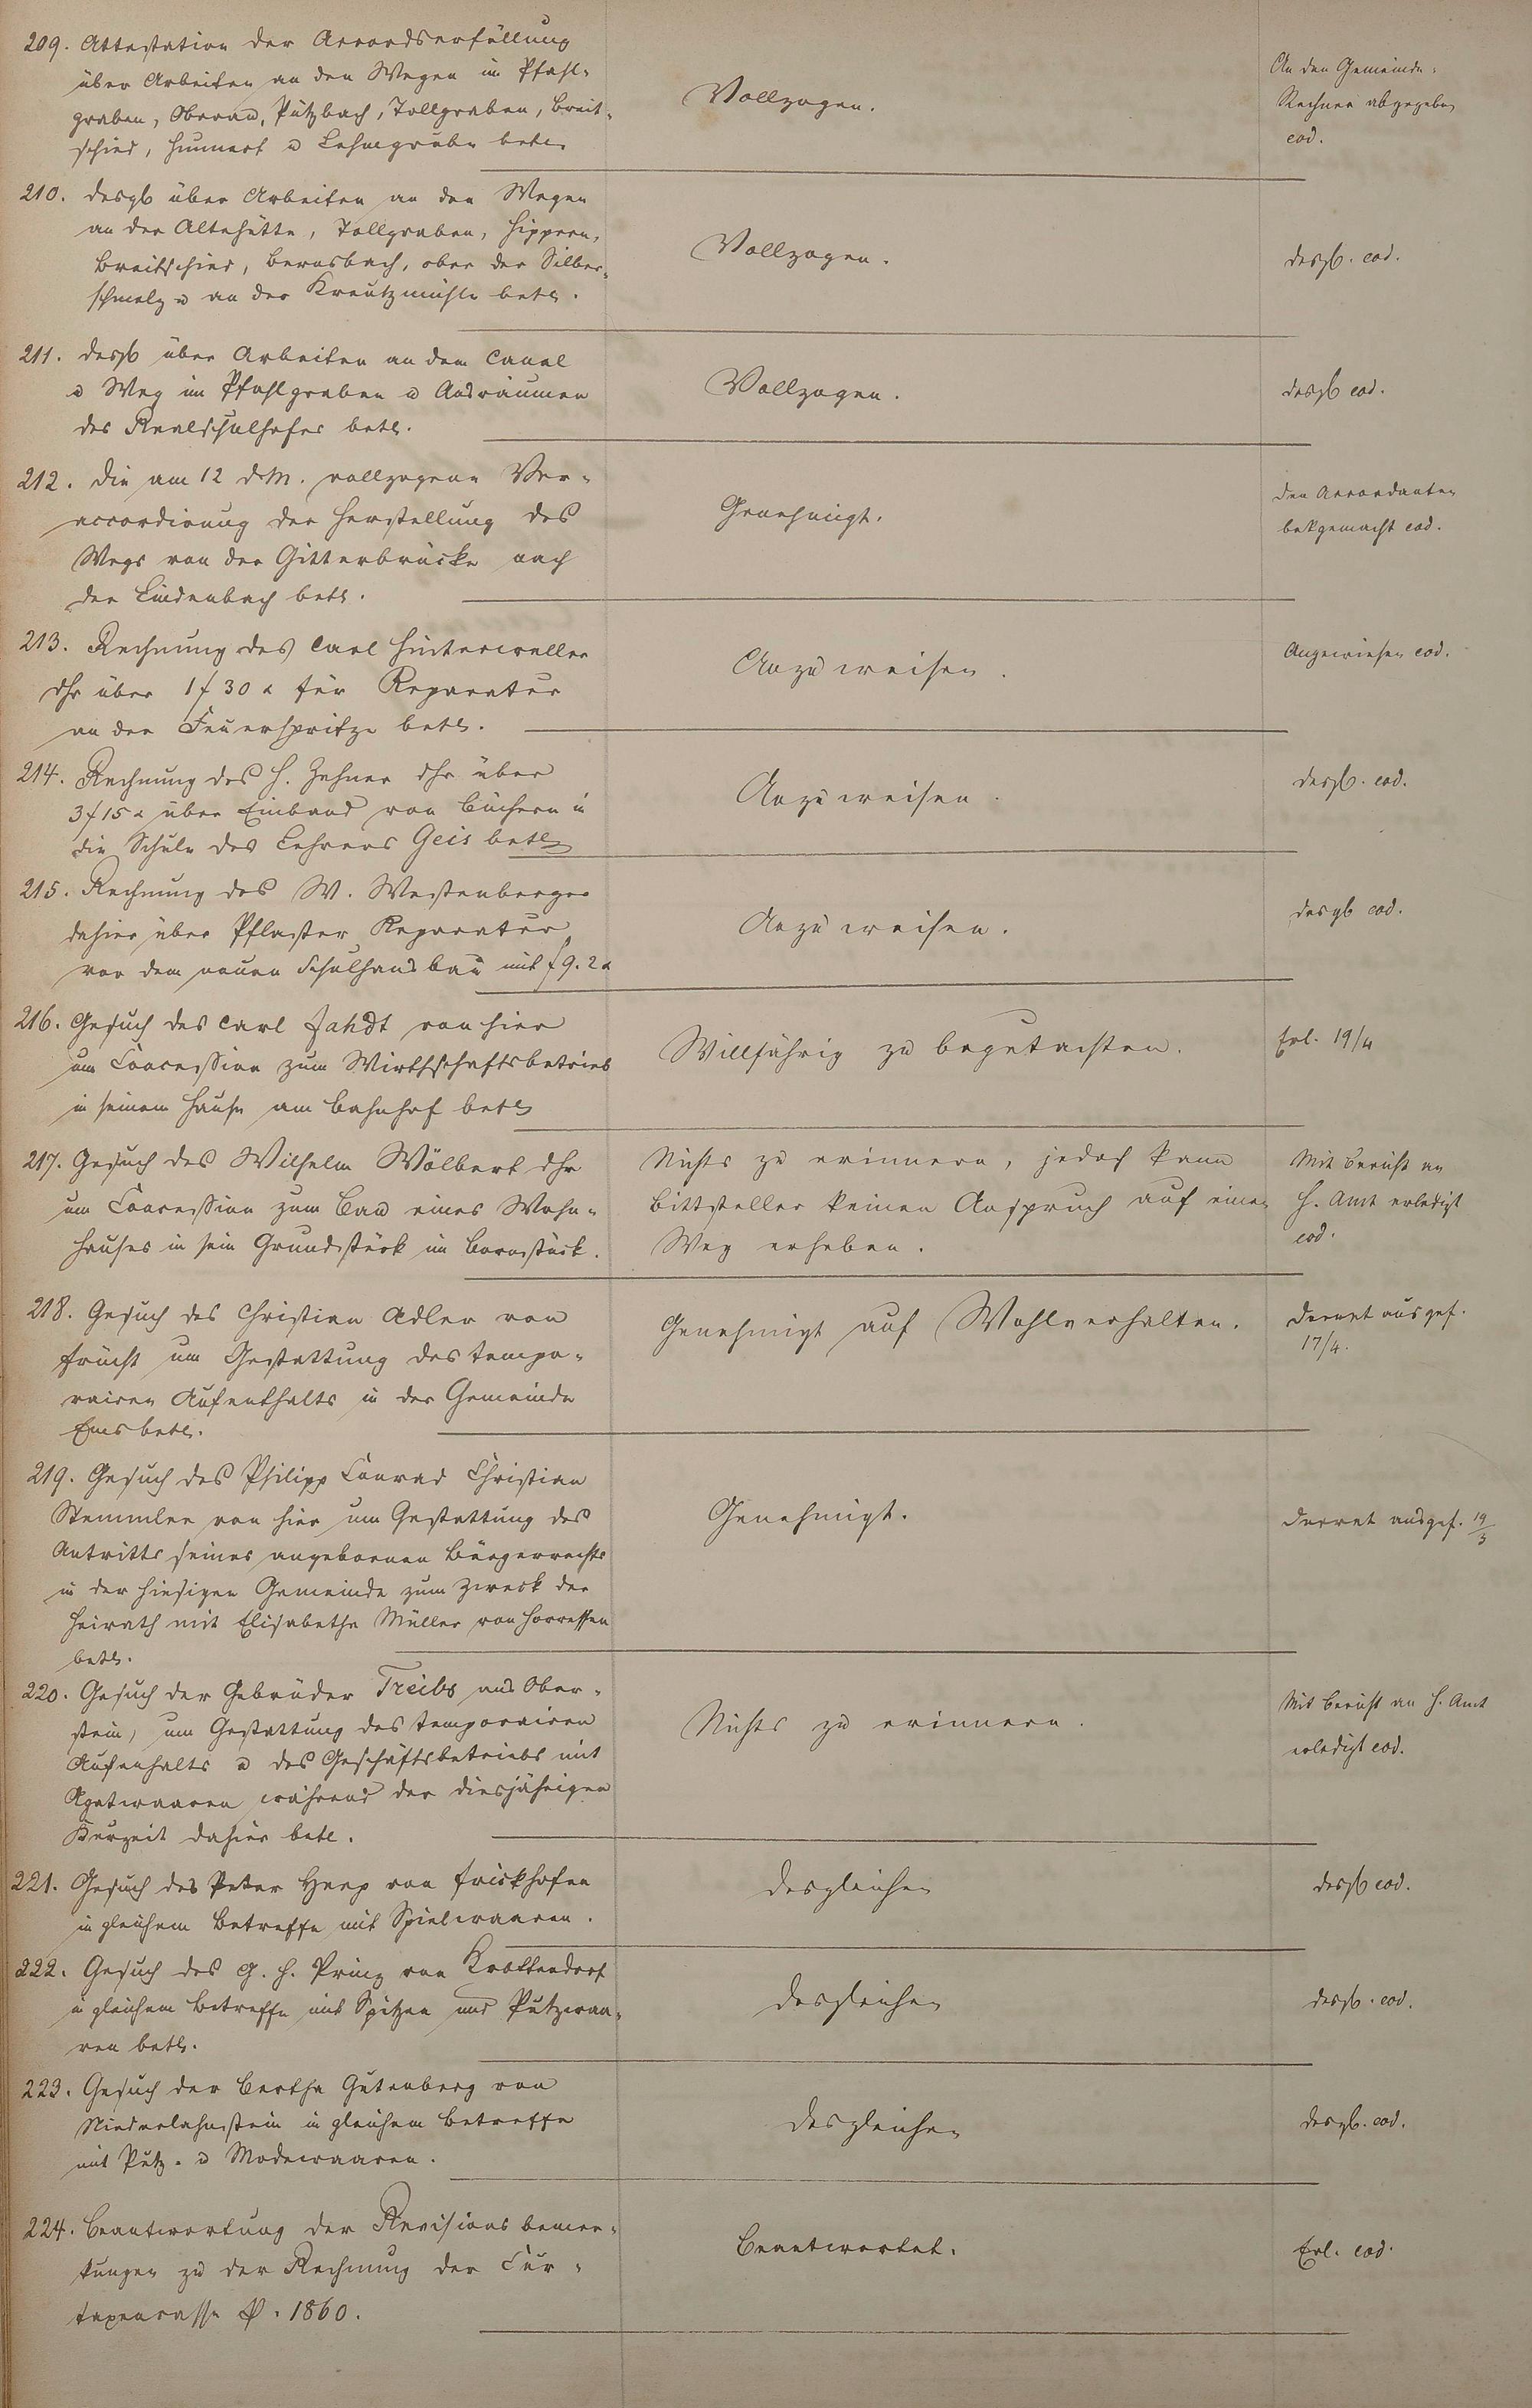 209. Attestation der Accordserfüllung
über Arbeiten an den Wegen im Pfahl-
graben, Oberau, Putzbach, Tollgraben, Breit-
schied, Hummerk u Lehmgrube betr.
Vollzogen.
An den Gemeinde-
Rechner abgegeben
eod.
210. desgl über Arbeiten an den Wegen
an der Altehütte, Tollgraben, Hippern,
Breitschied, Bernsbach, ober der Silber-
schmelz u an der Kreutzmühle betr.
Vollzogen.
desgl. eod.
211. desgl über Arbeiten an dem Canal
u Weg im Pfahlgraben u Ausräumen
des Realschulhofes betr.
Vollzogen.
desgl eod.
212. Die am 12 d.M. vollzogene Ver-
accordirung der Herstellung des
Wegs von der Gitterbrücke nach
der Lindenbach betr.
Genehmigt.
Den Accordanten
bekgemacht eod.
213. Rechnung des Carl Hinterweller
dhr über 1 f 30 x für Reparatur
an der Feuerspritze betr.
Anzuweisen.
Angewiesen eod.
214. Rechnung des H. Zehner dhr über
3 f 15 x über Einband von Büchern in
die Schule des Lehrers Geis betr
Anzuweisen.
desgl. eod.
215. Rechnung des W. Westenberger
dahier über Pflaster Reparatur
vor dem neuen Schulhausbau mit f 9. 2 x
Anzuweisen.
desgl eod.
216. Gesuch des Carl Jahdt von hier
um Concession zum Wirthschaftsbetrieb
in seinem Hause am Bahnhof betr
Willfährig zu begutachten.
Erl. 19/4
217. Gesuch des Wilhelm Wölbert dhr
um Concession zum Bau eines Wohn-
hauses in sein Grundstück im Bornstück.
Nichts zu erinnern, jedoch kann
Bittsteller keinen Anspruch auf einen
Weg erheben.
Mit Bericht an
H. Amt erledigt
eod.
218. Gesuch des Christian Adler von
Frücht um Gestattung des tempo-
rairen Aufenthalts in der Gemeinde
Ems betr.
Genehmigt auf Wohlverhalten.
Decret ausgef.
17/4.
219. Gesuch des Philipp Conrad Christian
Stemmler von hier um Gestattung des
Antritts seines angebornen Bürgerrechts
in der hiesigen Gemeinde zum Zweck der
Heirath mit Elisabethe Müller von Horressen
betr.
Genehmigt.
Decret ausgef. 19/3
220. Gesuch der Gebrüder Treibs aus Ober-
stein, um Gestattung des temporairen
Aufenhalts u des Geschäftsbetriebs mit
Agatwaaren während der diesjährigen
Kurzeit dahier betr.
Nichts zu erinnern.
Mit Bericht an H. Amt
erledigt eod.
221. Gesuch des Peter Heep von Frickhofen
in gleichem Betreffe mit Spielwaaren.
desgleichen
desgl eod.
222. Gesuch des G. H. Prinz von Krottendorf
in gleichem Betreffe mit Spitzen und Putzwaa-
ren betr.
desgleichen
desgl. eod.
223. Gesuch der Bertha Gutenberg von
Niederlahnstein in gleichem Betreffe
mit Putz- u Modewaaren.
desgleichen
desgl. eod.
224. Beantwortung der Revisions bemer-
kungen zu der Rechnung der Cur-
taxencasse p. 1860.
Beantwortet.
Erl. eod.